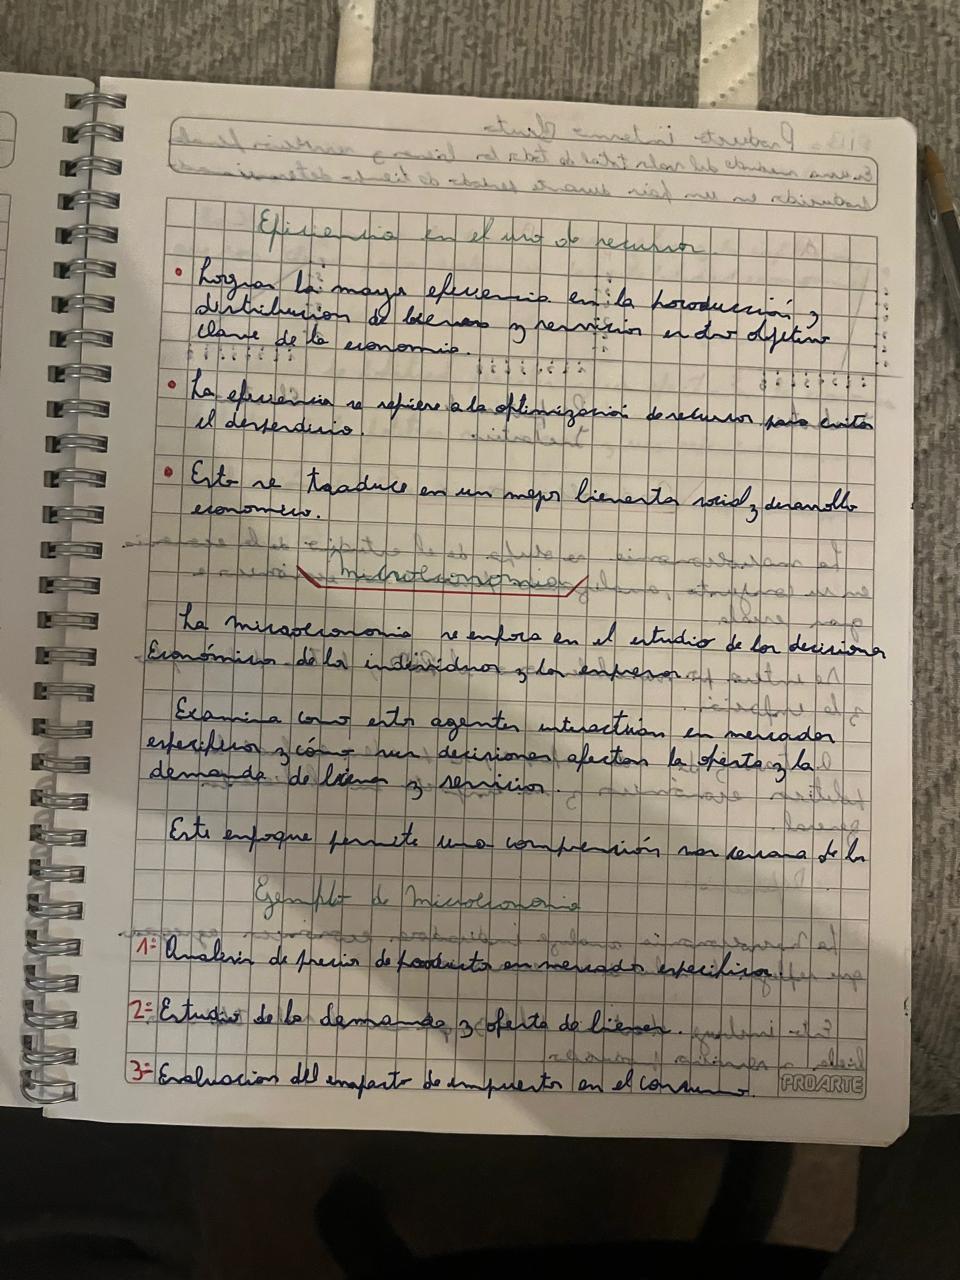 Eficiencia en el uso de recursos
• Lograr la mayor eficiencia en la producción y
distribucion de bienes y servicios en otro objetivo
clave de la economia.
• La eficiencia se refiere a la optimización de recursos para evitar
el desperdicio.
• Esto se traduce en un mejor bienestar social y desarrollo
economico.
Microeconomia
La microeconomia se enfoca en el estudio de las decisiones
Económicas de los individuos y las empresas.
Examina como estos agentes interactúan en mercados
especificos y cómo sus decisiones afectan la oferta y la
demanda de bienes y servicios.
Este enfoque permite una comprensión mas cercana de la
Ejemplos de Microeconomia
1= Analisis de precios de productos en mercados especificos.
2= Estudio de la demanda y oferta de bienes.
3= Evaluacion del impacto de impuestos en el consumo.
PROARTE